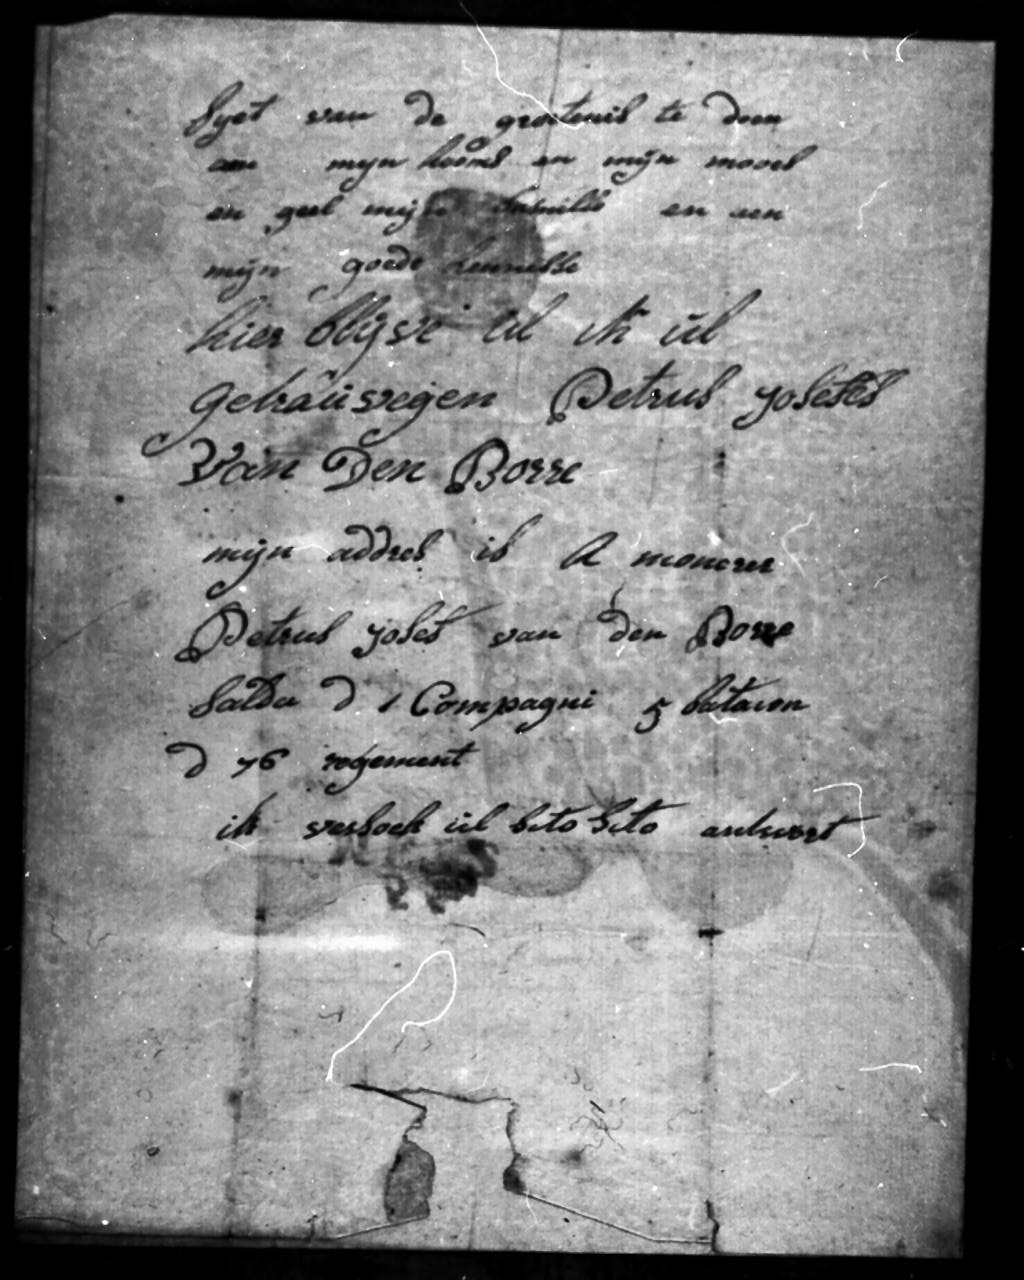 syet van de groetenis te doen
aen mijn kooms en mijn moeies
en geel mijn familis en aen
mijn goede kennisse
hier blijve ul ik ul
gehauwegen Petrus josefes
Van Den Borre
mijn addres is A moneur
Petrus josef van den Borre
saldu d 1 Compagni 5 bataion
d 76 regement
ik versoek ul sito sito antwort